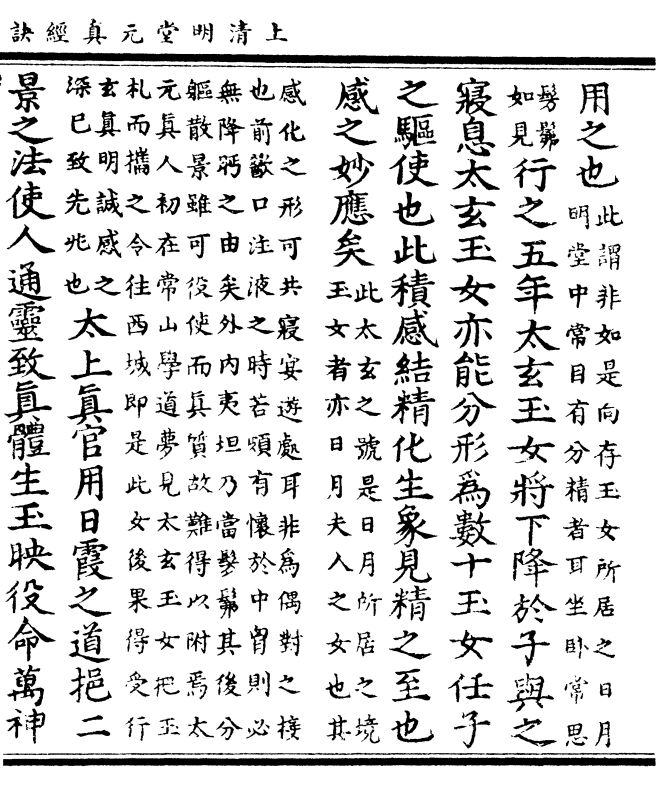 上清明堂元真經訣
用之也此謂非如是向存玉女所居之日月
明堂中常目有分精者耳坐卧常思
髣髴
如見行之五年太玄玉女將下降於子與之
寢息太玄玉女亦能分形爲數十玉女任子
之驅使也此積感結精化生象見精之至也
感之妙應矣此太玄之號是日月所居之境
玉女者亦日月夫人之女也其
感化之形可共寢宴遊處耳非爲偶對之接
也前歠口注液之時若頗有懷於中胷則必
無降眄之由矣外內夷坦乃當髣髴其後分
軀散景雖可役使而眞質故難得以附焉太
元眞人初在常山學道夢見太玄玉女把玉
札而攜之令往西城即是此女後果得受行
玄眞明誠感之
深已致先兆也太上眞官用日霞之道挹二
景之法使人通靈致眞體生玉映役命萬神